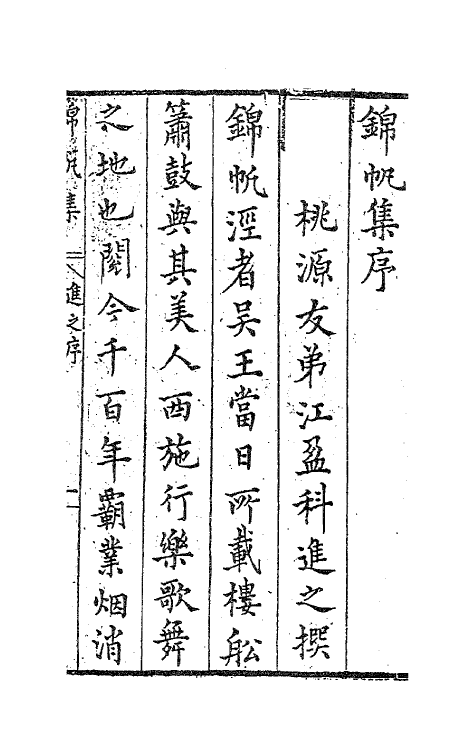 錦帆集序
桃源友弟江盈科進之撰
錦帆涇者吴王當日所載樓船
簫鼓與其美人西施行樂歌舞
之地也閱今千百年霸業烟消
錦帆集
進之序
一